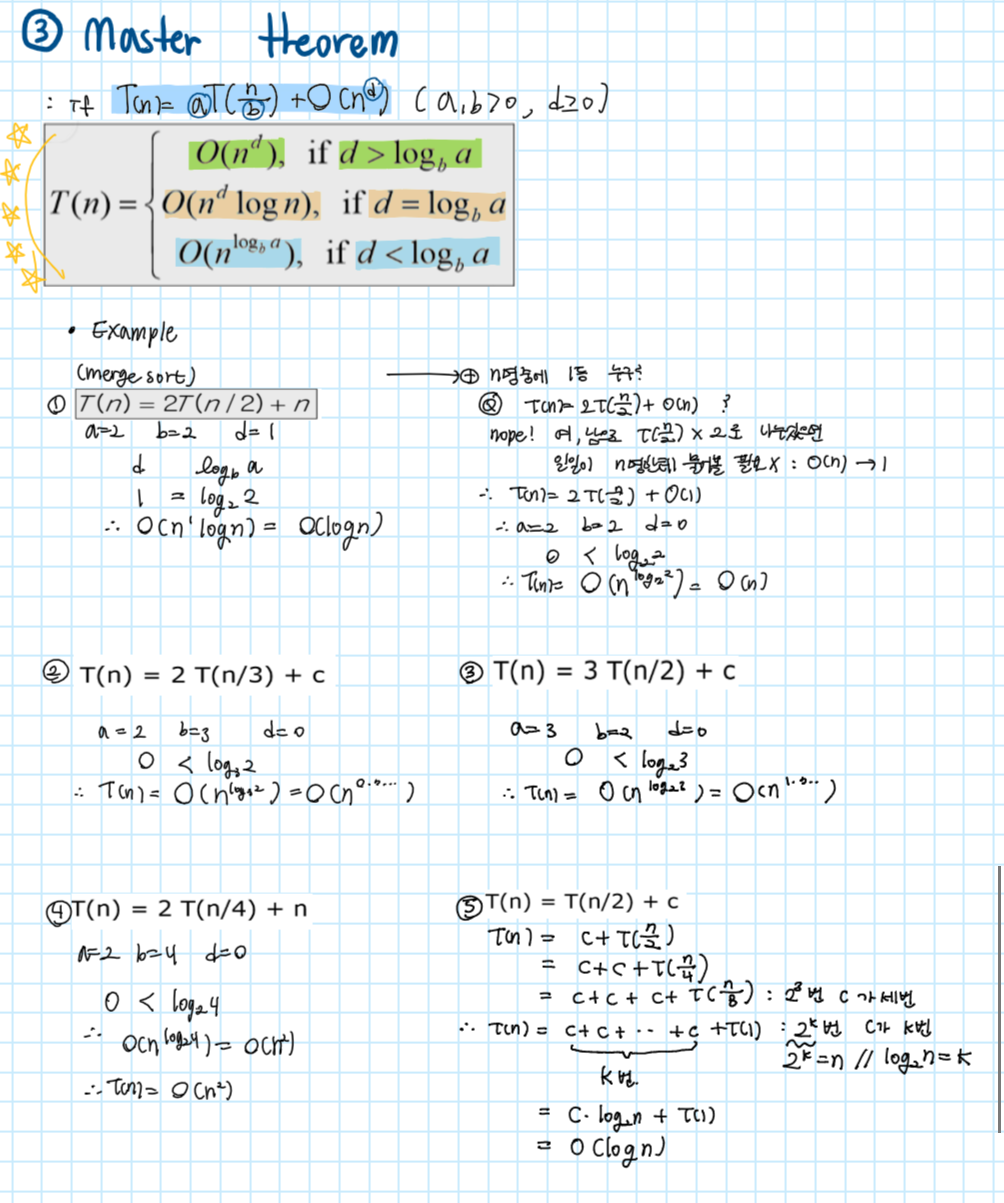 ③ Master theorem
: 코 T(n)= aT(n/b) + O(n^d) (a,b>0, d≥0)
T(n) = { O(n^d), if d > log_b a
O(n^d log n), if d = log_b a
O(n^{log_b a}), if d < log_b a
• Example
(merge sort)
① T(n) = 2T(n/2) + n
a=2 b=2 d=1
d log_b a
1 = log_2 2
∴ O(n^1 logn) = O(logn)
→⊕ n명중에 1등 누구?
Q T(n)= 2T(n/2) + O(n) ?
nope! 여,남으로 T(n/2) × 2로 나누었으면
일일이 n명한테 물어볼 필요X : O(n) → 1
∴ T(n)= 2T(n/2) + O(1)
∴ a=2 b=2 d=0
0 < log_2 2
∴ T(n)= O(n^{log_2 2}) = O(n)
② T(n) = 2 T(n/3) + c
a=2 b=3 d=0
0 < log_3 2
∴ T(n) = O(n^{log_3 2}) = O(n^{0.....})
③ T(n) = 3 T(n/2) + c
a=3 b=2 d=0
0 < log_2 3
∴ T(n) = O(n^{log_2 3}) = O(n^{1.....})
④ T(n) = 2 T(n/4) + n
a=2 b=4 d=0
0 < log_2 4
∴ O(n^{log_2 4}) = O(n²)
∴ T(n)= O(n²)
⑤ T(n) = T(n/2) + c
T(n) = c + T(n/2)
= c+c+T(n/4)
= c+c+c+T(n/8) : 2^3 번 c가 세번
∴ T(n) = c+c+ ·· +c +T(1) : 2^k번 c가 k번
k번. 2^k=n // log_2 n=k
= c·log_2 n + T(1)
= O(logn)